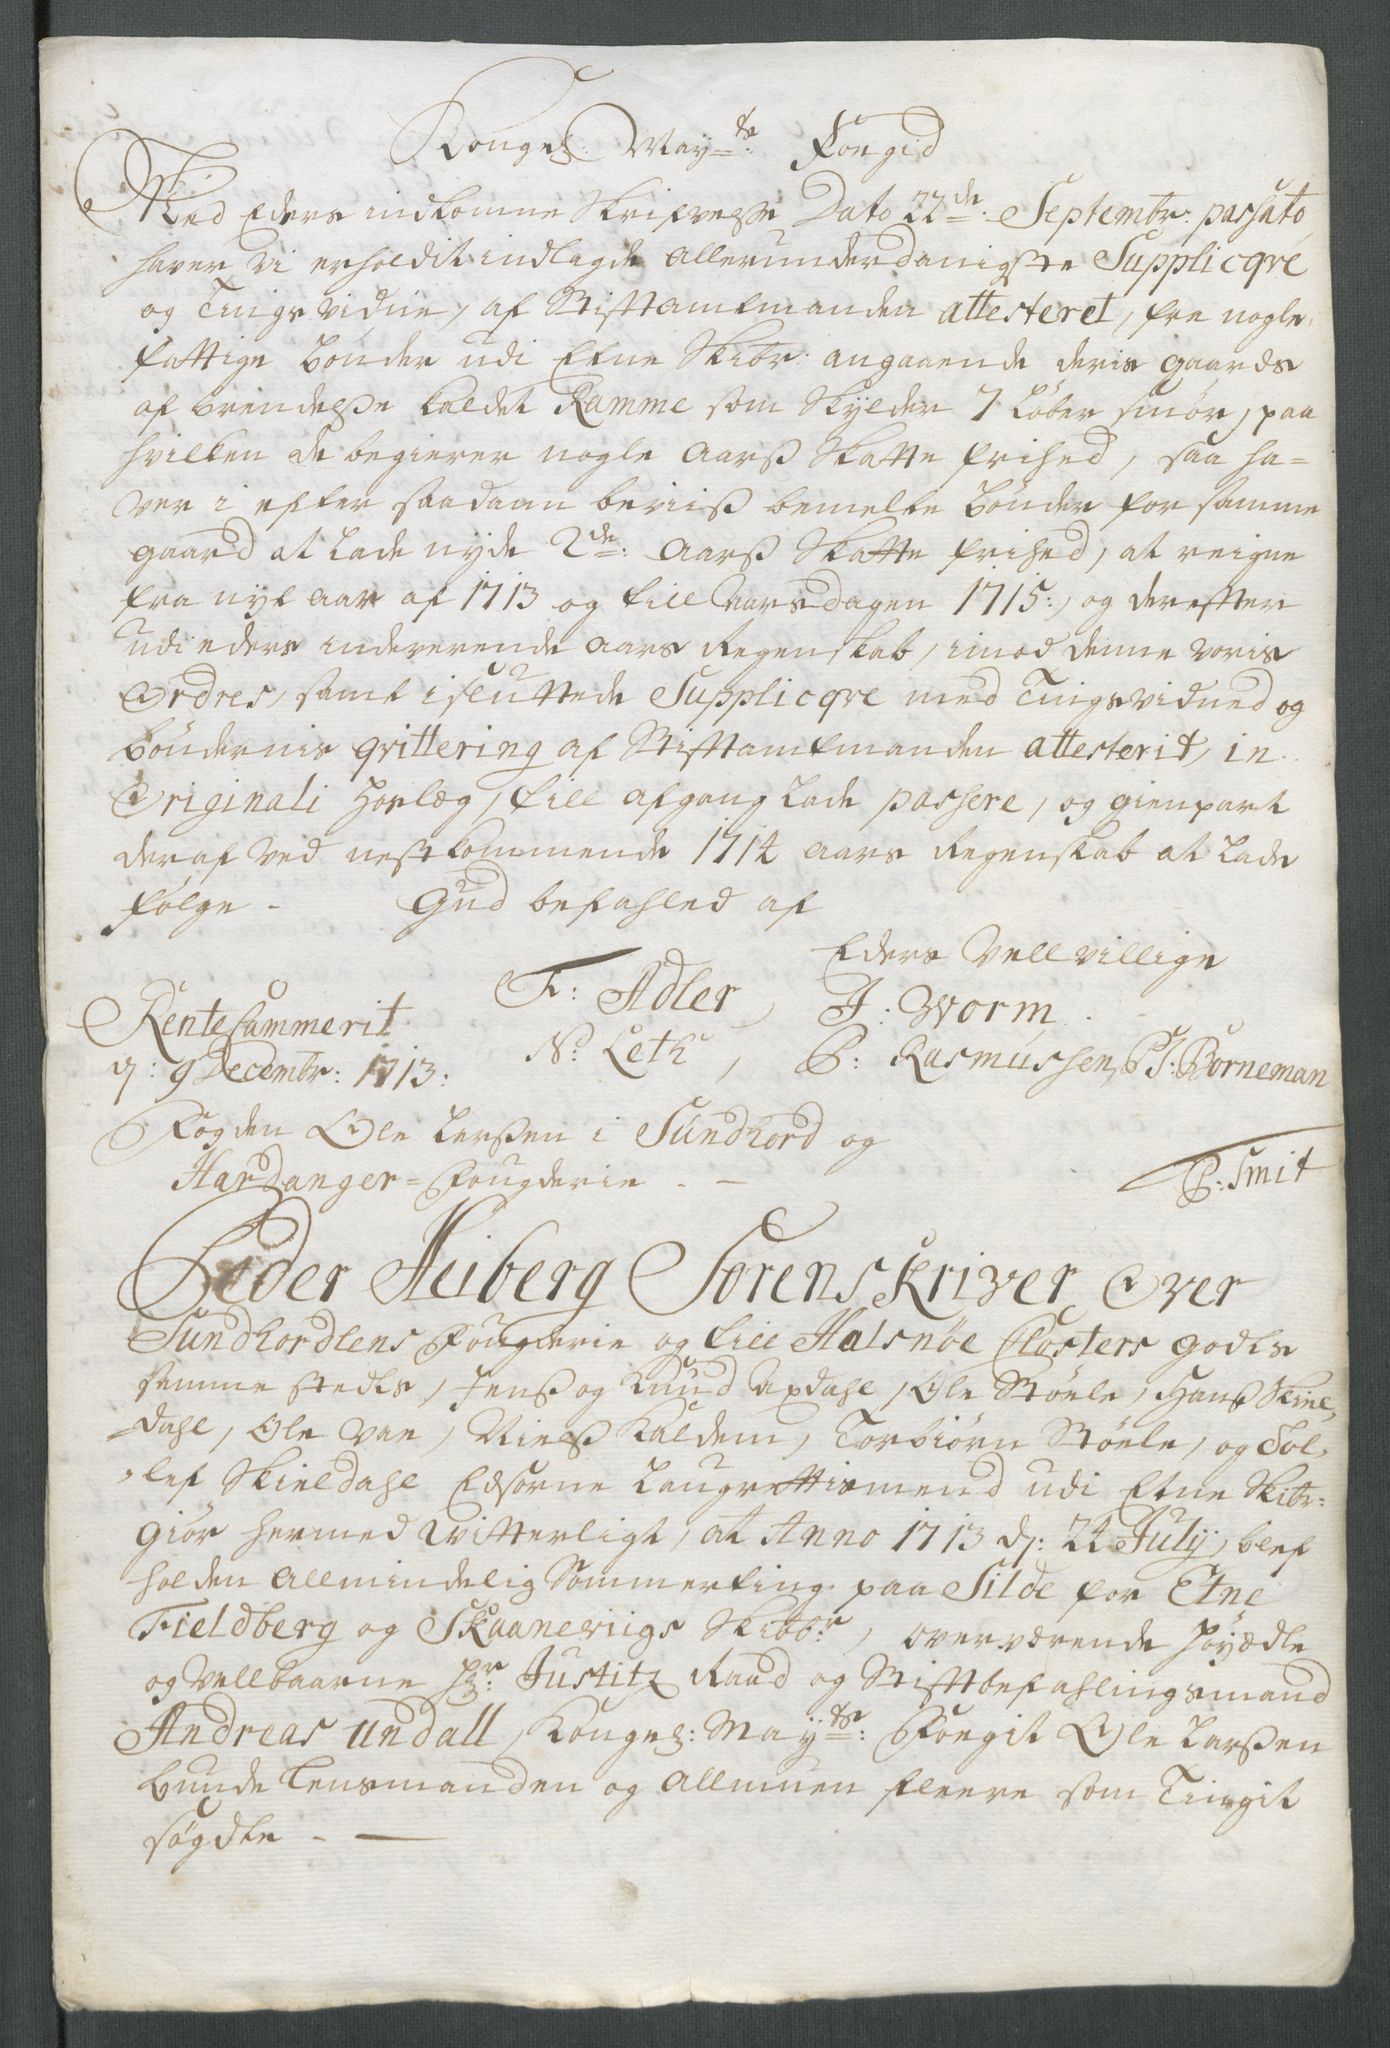 Kongel: May:ts: Foegid
Med Eders indkomne Skrifvelße Dato 22de: Septembr: passato,
haver vi erholdit indlagde allerunderdanigste Supplicqve
og Tings vidne, af Stiftamtmanden attesteret, fra nogle
fattige bønder udi Etne Skibr: angaaende deris gaards
af brendelße kaldet Ramme som skylder 7 Løber smør, paa
hvilken de begierer nogle aarß Skatte frihed, saa ha-
ver i efter saadaan beviiß bemelte bønder for samme
gaard at lade nyde 2de: aarß Skatte frihed, at reigne
fra nyt aar af 1713 og till aarsdagen 1715:, og derefter
udi eders indeverende aars Regenskab, imod denne voris
Ordres, samt isluttede Supplicqve med Tingsvidned og
bøndernis qvittering af Stiftamtmanden attesterit, in
Originali hoslæg, till afgang lade passere, og gienpart
deraf ved nestkommende 1714 aars Regenskab at lade
følge - Gud befahled af
Eders Vell villige
F: Adler, J: Worm.
RenteCammerit
N: Leth, P: Rasmussen, PJ: Borneman
d: 9 Decembr: 1713:
Fogden Ole Larßen i Sundhord og
Hardanger-Fougderie - -
P: Smit
Peder Heiberg Sorenskriver Over
Sundhordlens Fougderie og till Halsnøe Closters godtz
samme stedtz, Jenß og Knud Axdahl, Ole Støele, Hanß Skiel-
dahl, Ole Vae, Nielß Kaldem, Torbiørn Støele, og Tol-
lef Skieldahl Edsorne Laugrettismend udi Etne Skibr:
Giør hermed Vitterligt, at Anno 1713 d: 24 July, blef
holden allmindelig Sommerting paa Silde for Etne
Fieldberg og Skaaneviigs Skibb:r, overværende høyædle
og Vellbaarne Hr: Justitz Raad og Stiftbefahlingsmand
Andreas Undall, Kongel: May:ts: Foegit Ole Larßen
bunde Lensmanden og allmuen fleere som Tingit
søgdte - —